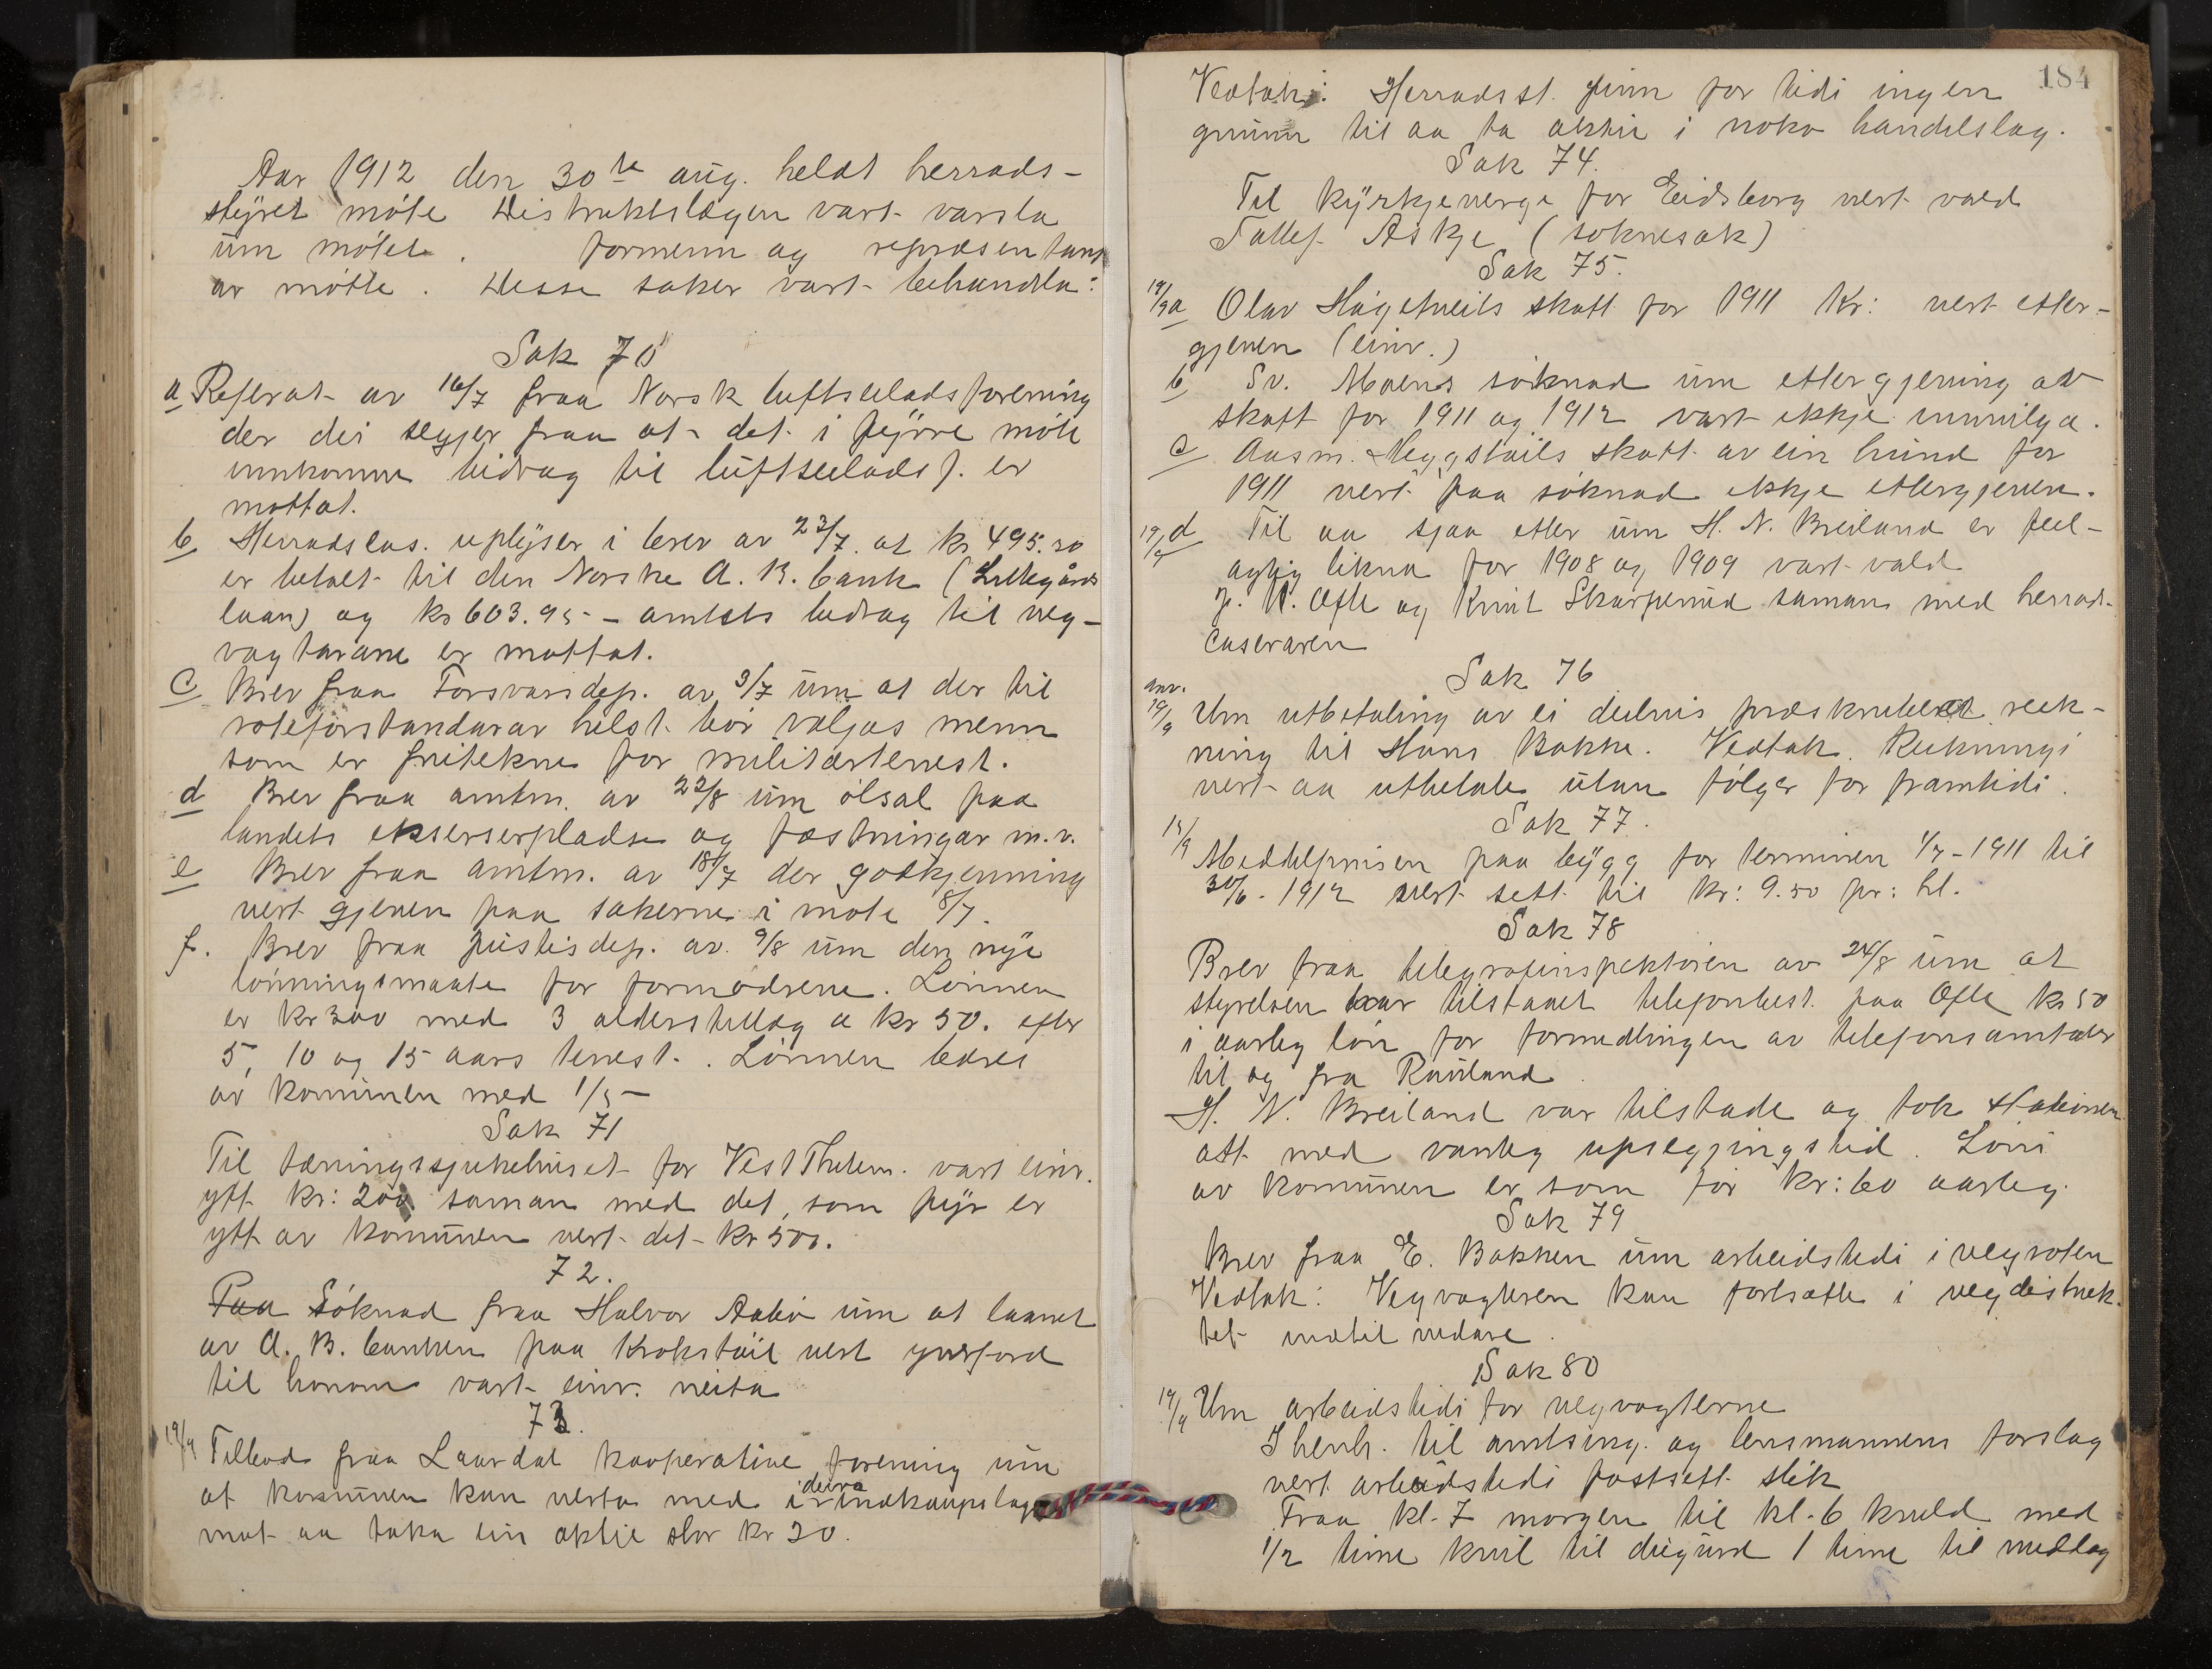 Aar 1912 den 30te aug. heldt herrads-
styret møte Distriktslægen vart varsla
um møtet. formenn og repræsentant
ar møtte. Desse saker vart behandla:
Sak 70
a Referat av 16/7 fraa Norsk luftseiladsforening
der dei segjer fraa at det i fyrre møte
innkomne bidrag til luftseiladsf. er
mottat.
b Herradskas. uplyser i brev av 23/7 at kr 495.20
er betalt til den Norske A. B. bank (
laan) og kr 603.95 - amtets bidrag til veg-
vagtarane er mottat.
c Brev fraa Forsvarsdep. av 3/7 um at der til
roteforstandarar helst bør væljas menn
som er fritekne for militærtenest.
d Brev fraa amtm. av 22/8 um ølsal paa
landets ekserserpladse og fæstningar m.v.
e Brev fraa amtm. av 18/7 der godkjenning
vert gjeven paa sakerne i møte 8/7.
f. Brev fraa justisdep. av 9/8 um den nye
lønningsmaate for formødrene. Lønnen
er kr 300 med 3 alderstillæg a kr 50. efter
5, 10 og 15 aars tenest. Lønnen bæres
av kommunen med 1/5
Sak 71
Til tæringssjukehuset for Vest Thelem. vart einr.
ytt kr: 200 saman med det, som fyr er
ytt av kommunen vert det kr 500.
72.
Paa Søknad fraa Halvor Aabø um at laanet
av A. B. banken paa Krokstøil vert yverførd
til honom vart einr. neita
73.
19/9 Tilbod fraa Laardal kooperative forening um
at kommunen kan verta med i deira innkaupslag
mot aa taka ein aktie stor kr 20.
184
Vedtak: Herradsst. finn for tidi ingen
grunn til aa ta aktie i noko handelslag.
Sak 74.
Til kyrkjeverge for Eidsborg vert vald
Tallef Askje (soknesak)
Sak 75.
19/9 a Olav Høgetveits skatt for 1911 Kr: vert etter-
gjeven (einr.)
b Sv. Moens søknad um ettergjeving av
skatt for 1911 og 1912 vart ikkje innvilga.
c Aasm. Høggstøils skatt av ein hund for
1911 vert paa søknad ikkje ettergjeven.
19/9 d Til aa sjaa etter um H. N. Breiland er feil-
agtig likna for 1908 og 1909 vart vald
Ofte og Knut Skarperud saman med herrads-
caseraren
Sak 76
anv. 19/9 Um utbetaling av ei deelvis præskribert reek-
ning til Hans Bakke. Vedtak. Rekningi
vert aa utbetale utan følger for framtidi.
Sak 77.
19/9 Meddelprisen paa bygg for terminen 1/7-1911 til
30/6-1912 vert sett til kr: 9.50 pr: hl.
Sak 78
Brev fraa telegrafinspektøren av 24/8 um at
styrelsen har tilstaaet telefonbest. paa Ofte kr 50
i aarleg løn for formedlingen av telefonsamtaler
til og fra Rauland.
H. N. Breiland var tilstade og tok stationen
att med vanleg upsegjingstid. Løni
av kommunen er som før kr: 60 aarleg.
Sak 79
Brev fraa E. Bakken um arbeidstidi i vegroten
Vedtak: Vegvagteren kan fortsætte i vegdistrik-
tet indtil vidare.
Sak 80
19/9 Um arbeidstidi for vegvagterne
I henh. til amtsing. og lensmannens forslag
vert arbeidstidi fastsett slik
Fraa kl. 7 morgen til kl. 6 kveld med
1/2 time kvil til dugurd 1 time til middag